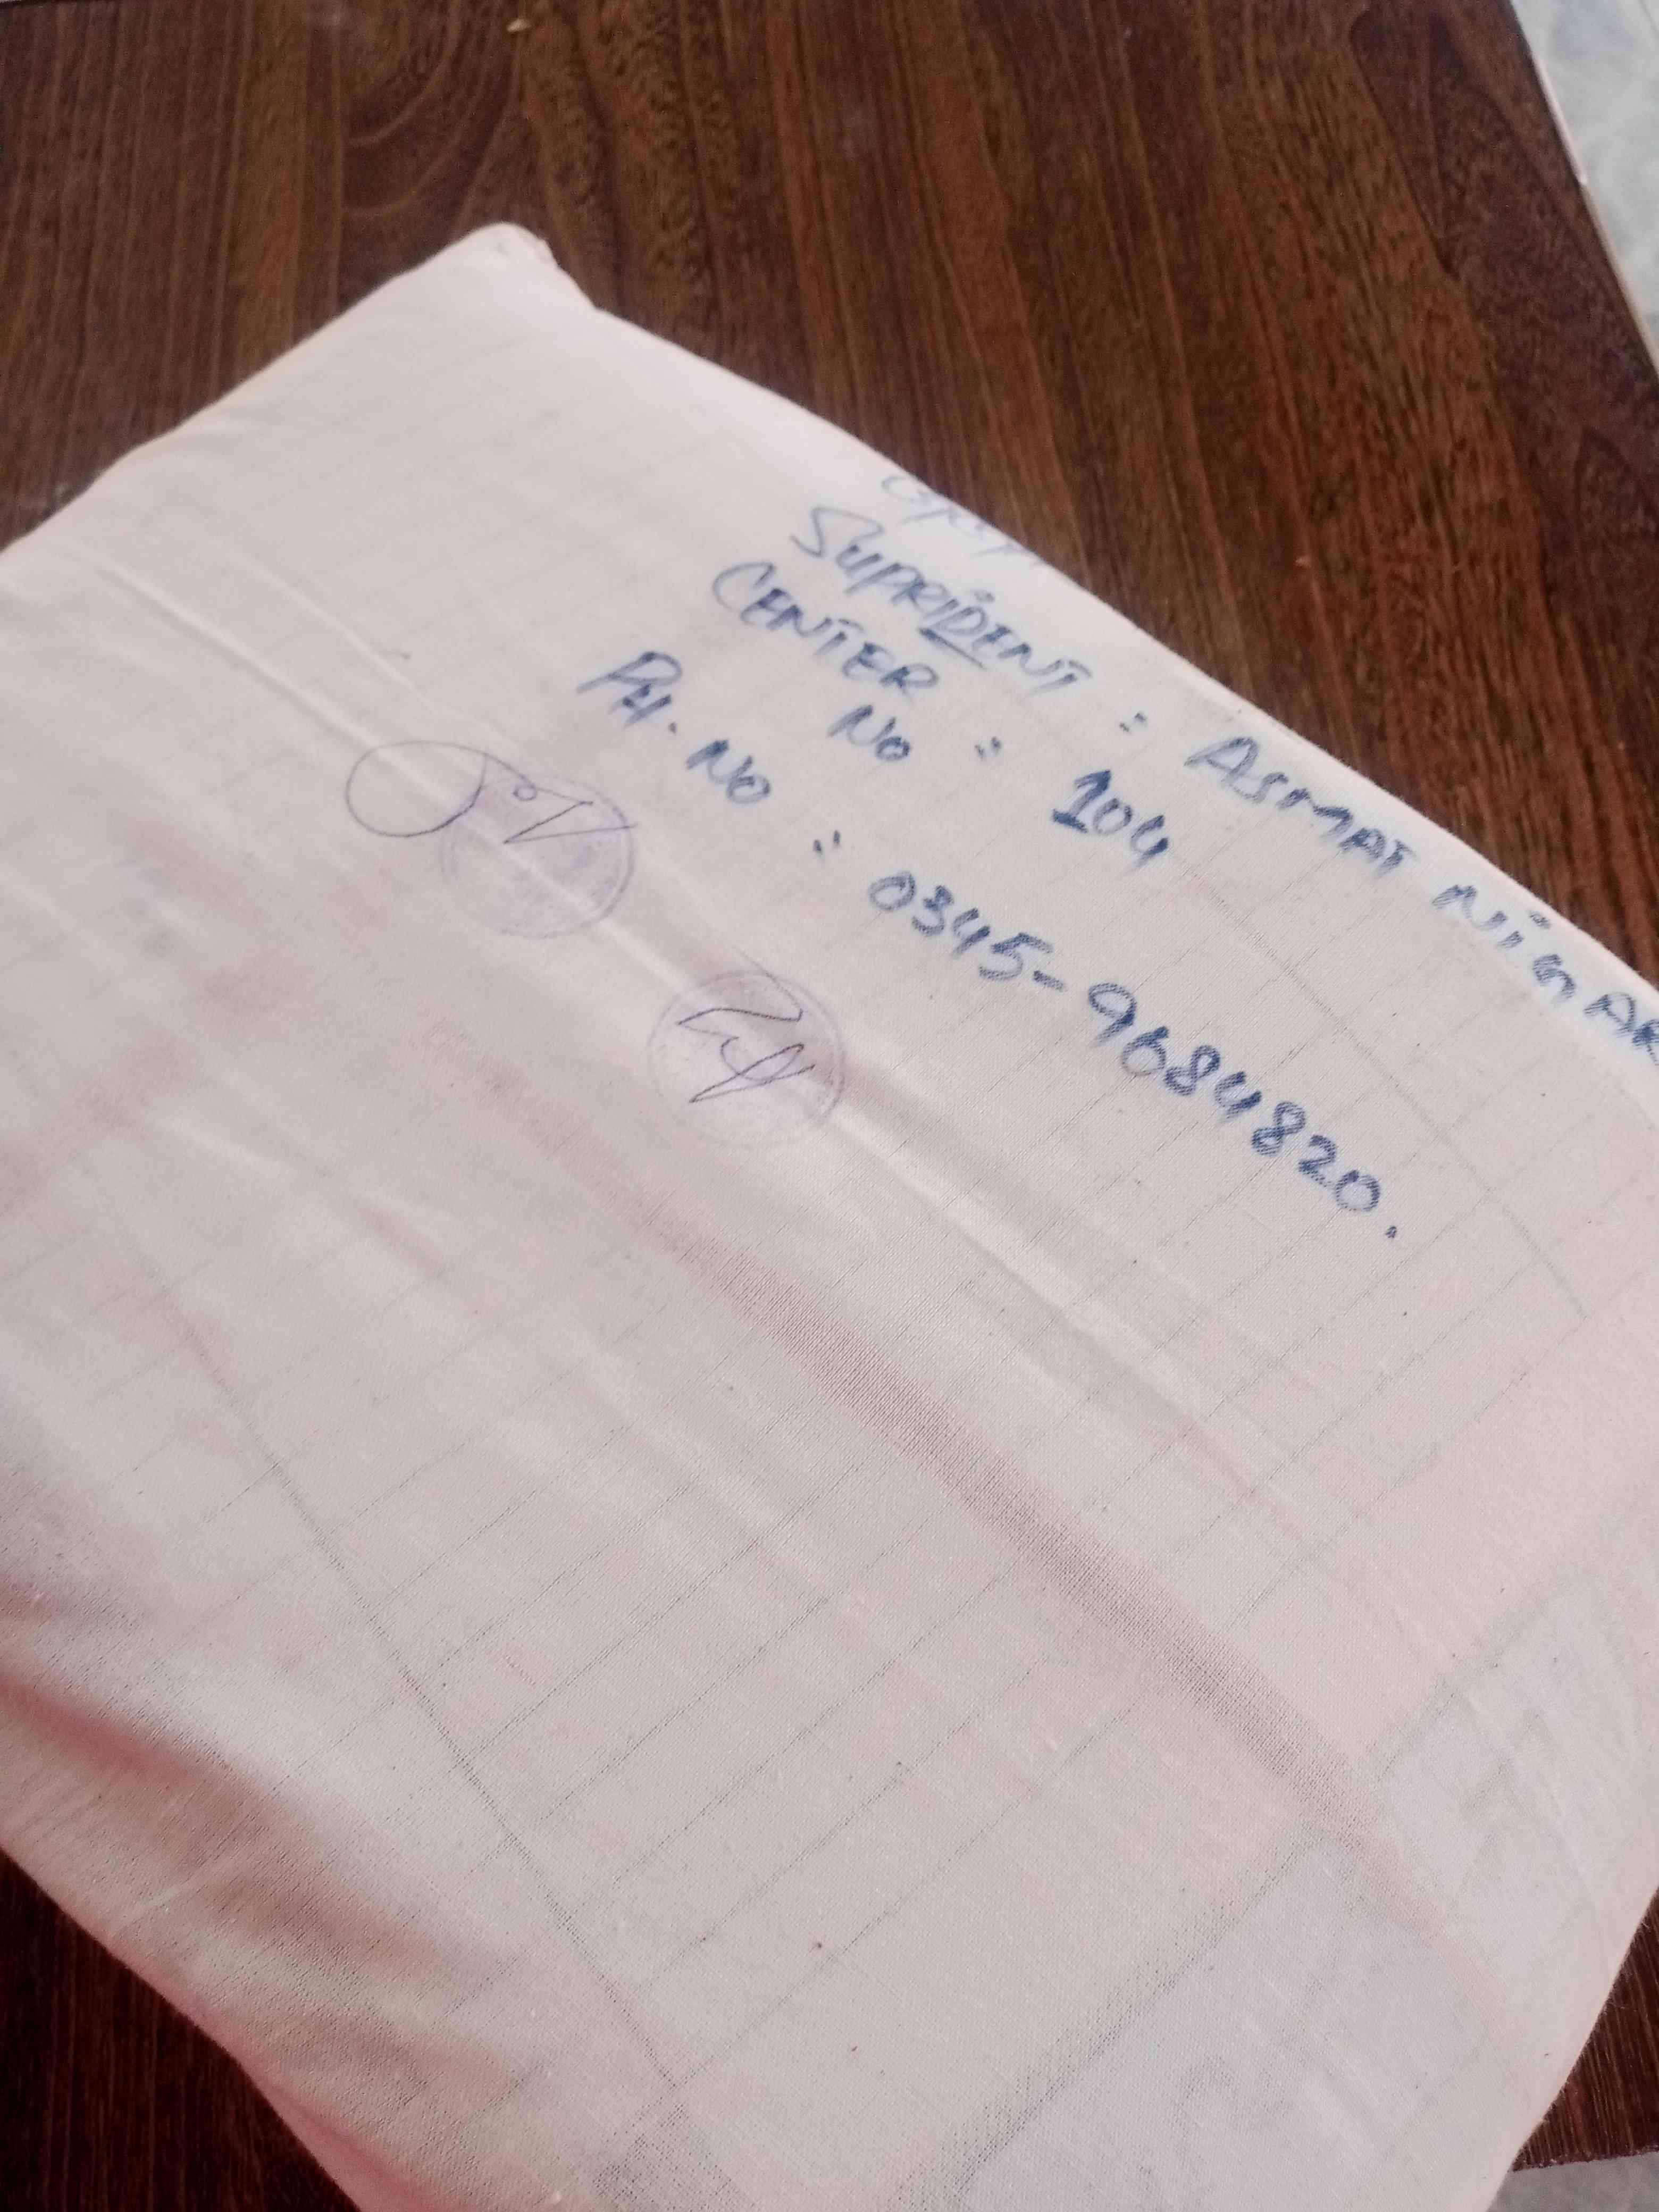 SUPRIDENT : ASMAT NIGAR
CENTER NO : 104
PH. NO : 0345-9684820.